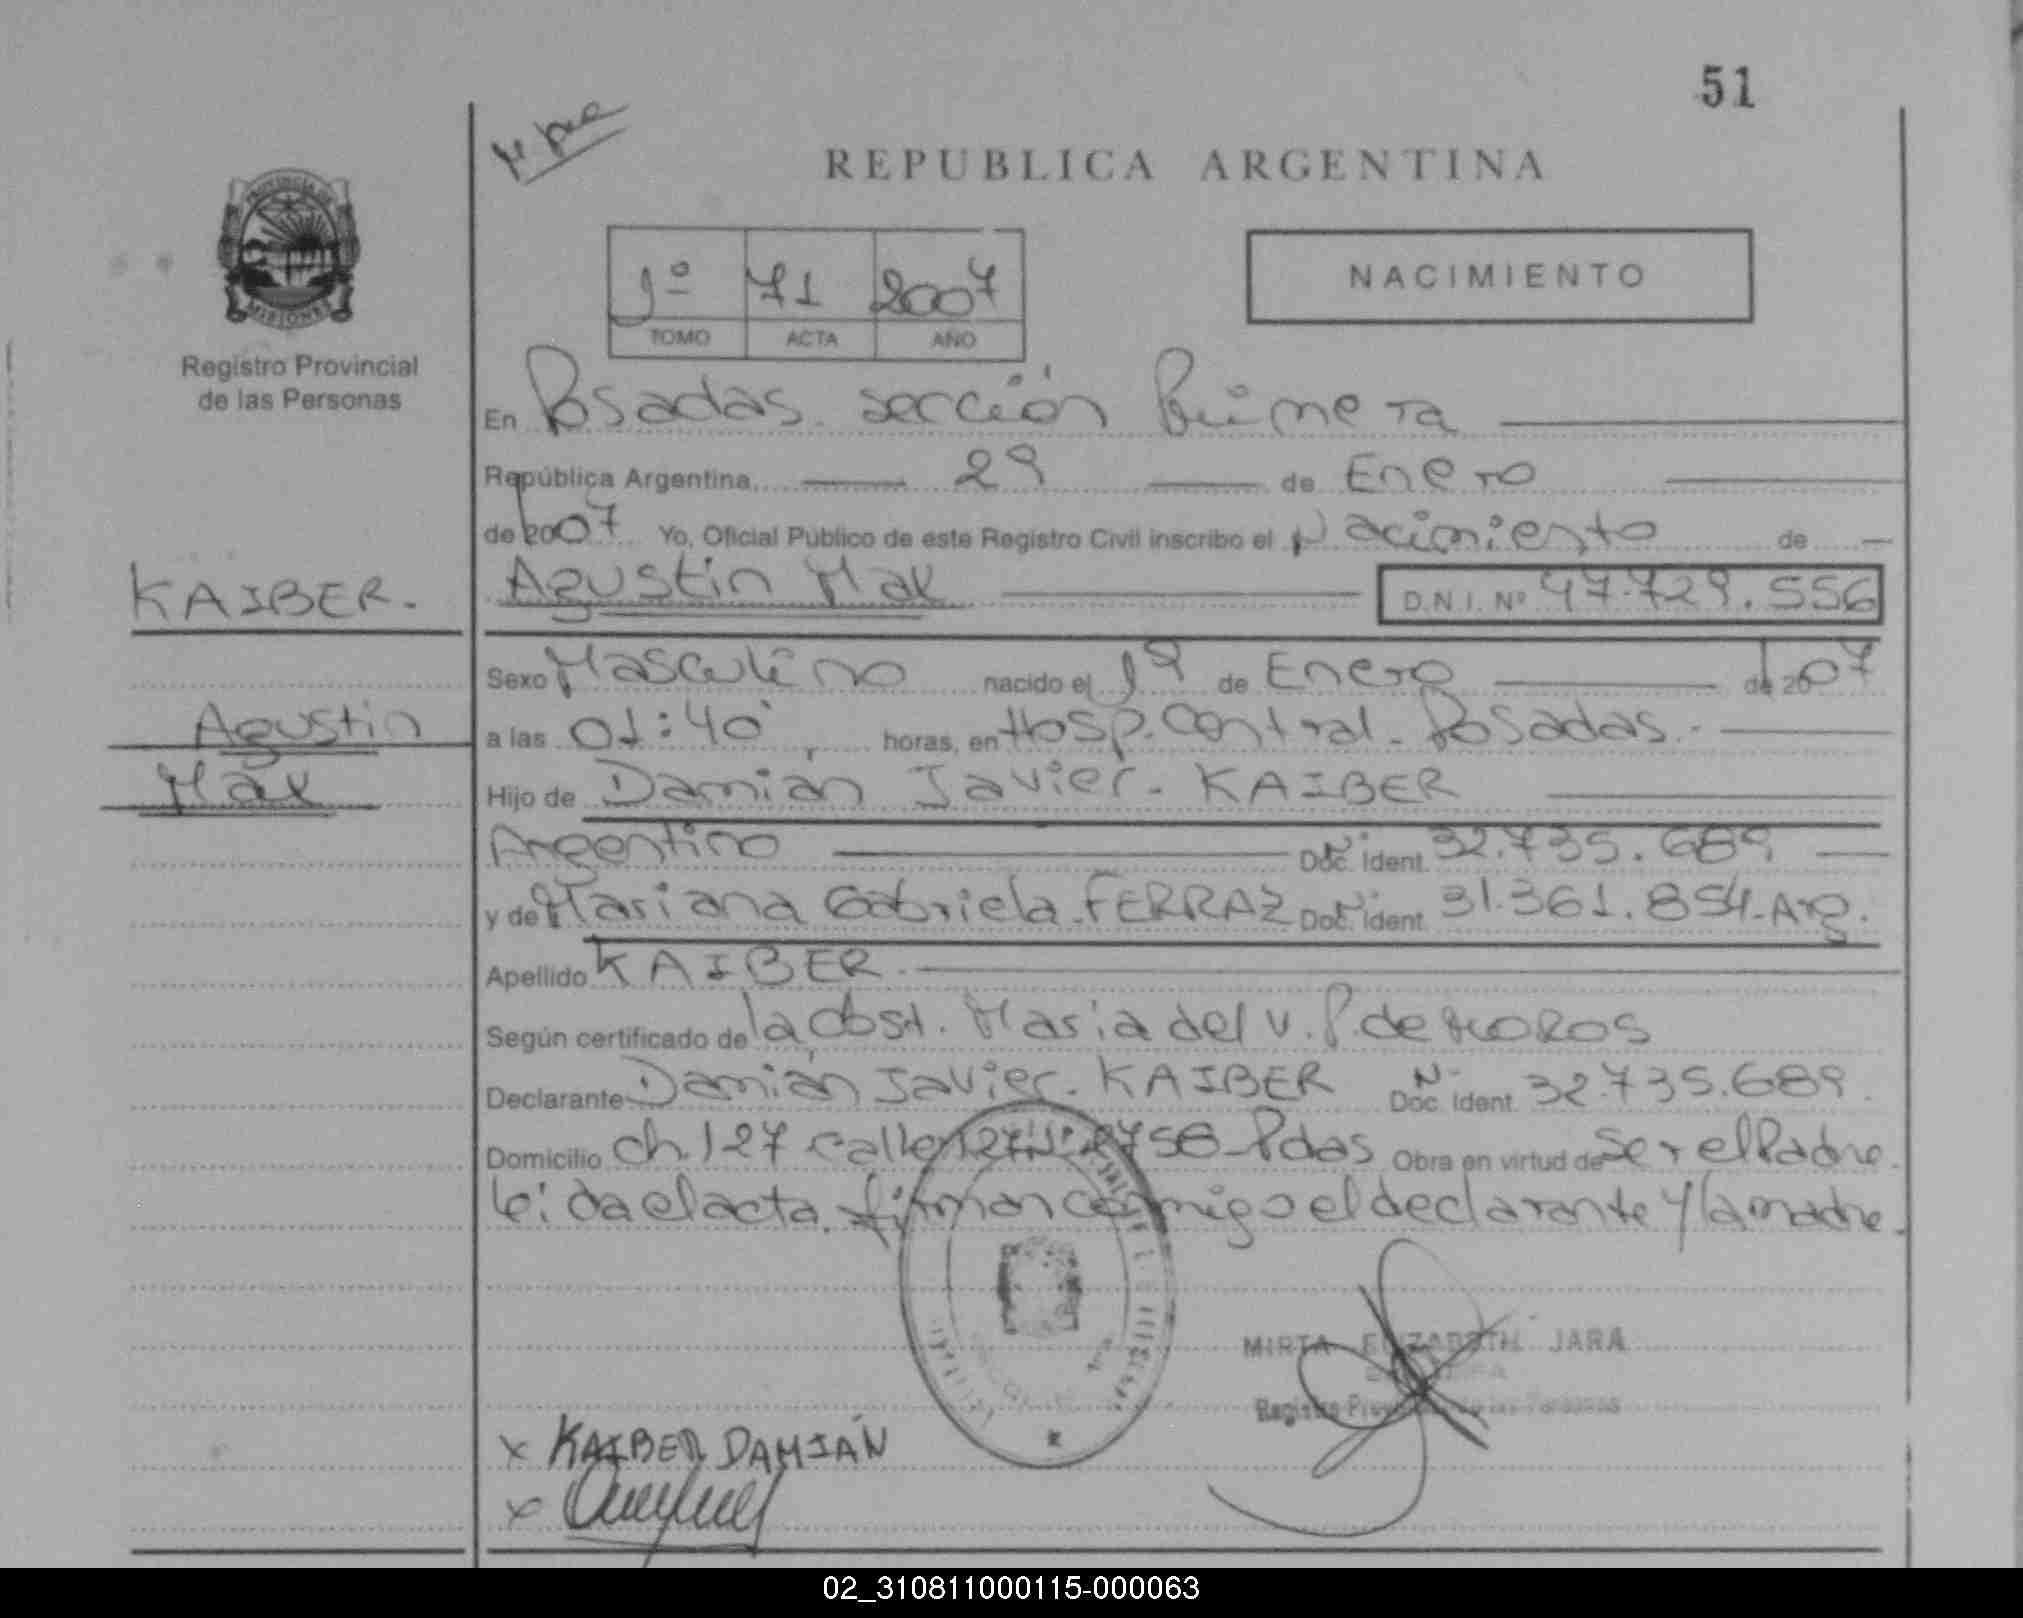 51
REPUBLICA ARGENTINA
PROVINCIA DE
MISIONES
Registro Provincial
de las Personas
1º 71 2007
TOMO ACTA AÑO
NACIMIENTO
En Posadas sección Primera
República Argentina, 29 de Enero
de 2007 Yo, Oficial Público de este Registro Civil inscribo el Nacimiento de
KAIBER.
Agustin Max D.N.I. Nº 47.729.556
Sexo Masculino nacido el 19 de Enero de 2007
Agustin
a las 01:40 horas, en Hosp. Central - Posadas.-
Max
Hijo de Damián Javier - KAIBER
Argentino Doc. Ident. Nº 32.735.689
y de Mariana Gabriela - FERRAZ Doc. Ident. Nº 31.361.854 - Arg.
Apellido KAIBER.
Según certificado de la obst. Maria del V. P. de MOROS
Declarante Damián Javier - KAIBER Doc. Ident. Nº 32.735.689.
Domicilio ch. 127 calle 127 Nº 2758 - Pdas Obra en virtud de Ser el Padre.
leida el acta. firman conmigo el declarante y la madre.
MIRTA ELIZABETH JARA
Registro Provincial de las Personas
x KAIBER DAMIÁN
x
02_310811000115-000063